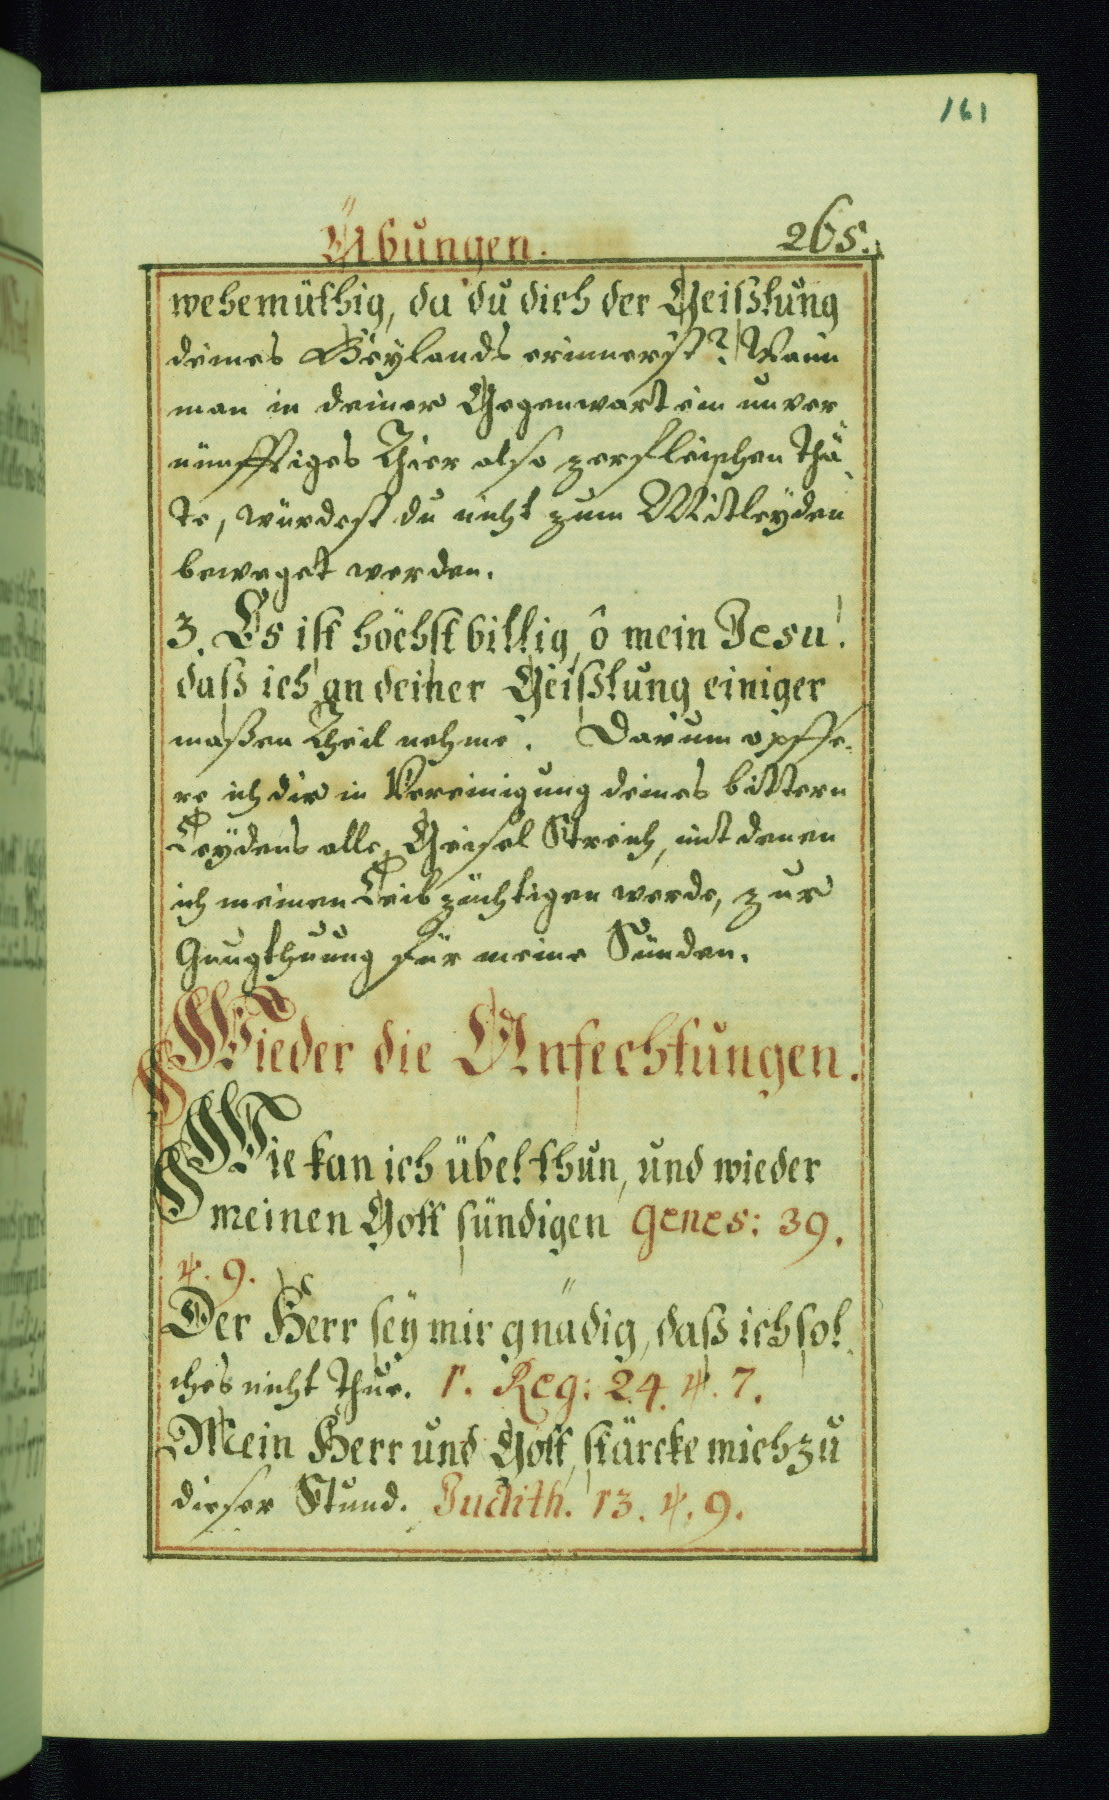 161
Übungen. 265.
wehemüthig, da du dich der Geißlung
deines Heylands erinnerst? Wann
man in deiner Gegenwart ein unver
nünfftiges Thier also zerfleischen thä
te, würdest du nicht zum Mitleÿden
beweget werden.
3. Es ist höchst billig, ô mein Jesu!
daß ich an deiner Geißlung einiger
maßen Theil nehme. Darum opffe-
re ich dir in Vereinigung deines bittern
Leÿdens alle Geisel Streich, mit denen
ich meinen Leib züchtigen werde, zur
Gnugthuung für meine Sünden.
Wieder die Anfechtungen.
Wie kan ich übel thun, und wieder
meinen Gott sündigen Genes: 39.
℣. 9.
Der Herr seÿ mir gnädig, daß ich sol
ches nicht thue. 1. Reg: 24. ℣. 7.
Mein Herr und Gott, stärcke mich zu
dieser Stund. Judith. 13. ℣. 9.